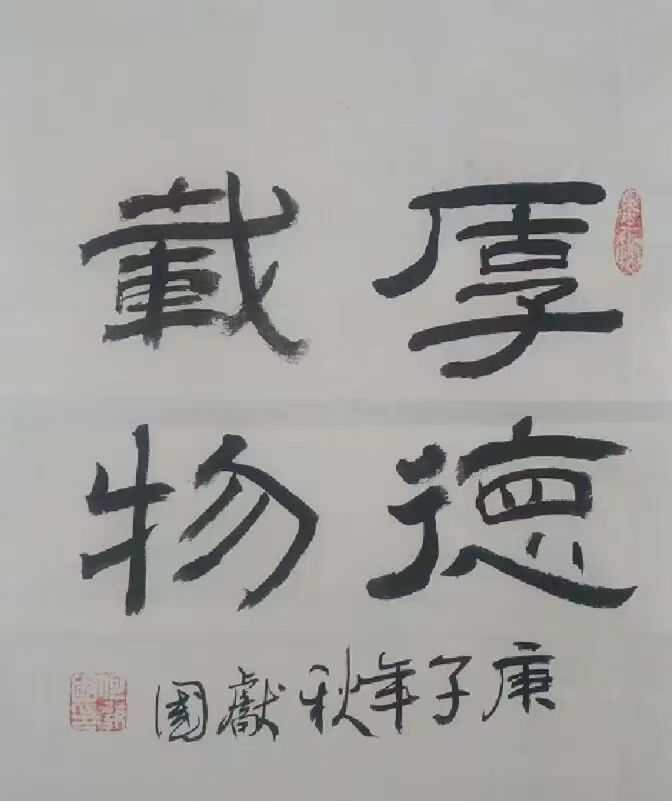 厚德
載物
庚子年秋獻國